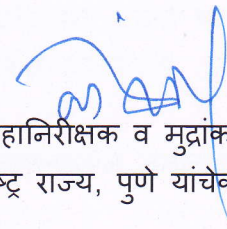 हानिरीक्षक व मुद्रांक
ष्ट्र राज्य, पुणे यांचे